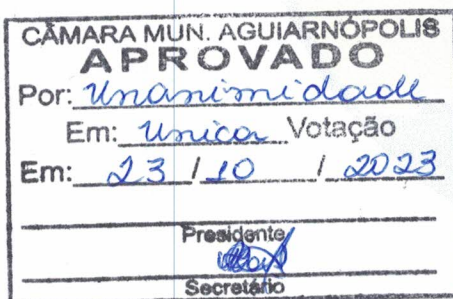 CÂMARA MUN. AGUIARNÓPOLIS
APROVADO
Por: Unanimidade
Em: Unica Votação
Em: 23 / 10 / 2023
Presidente
Secretário